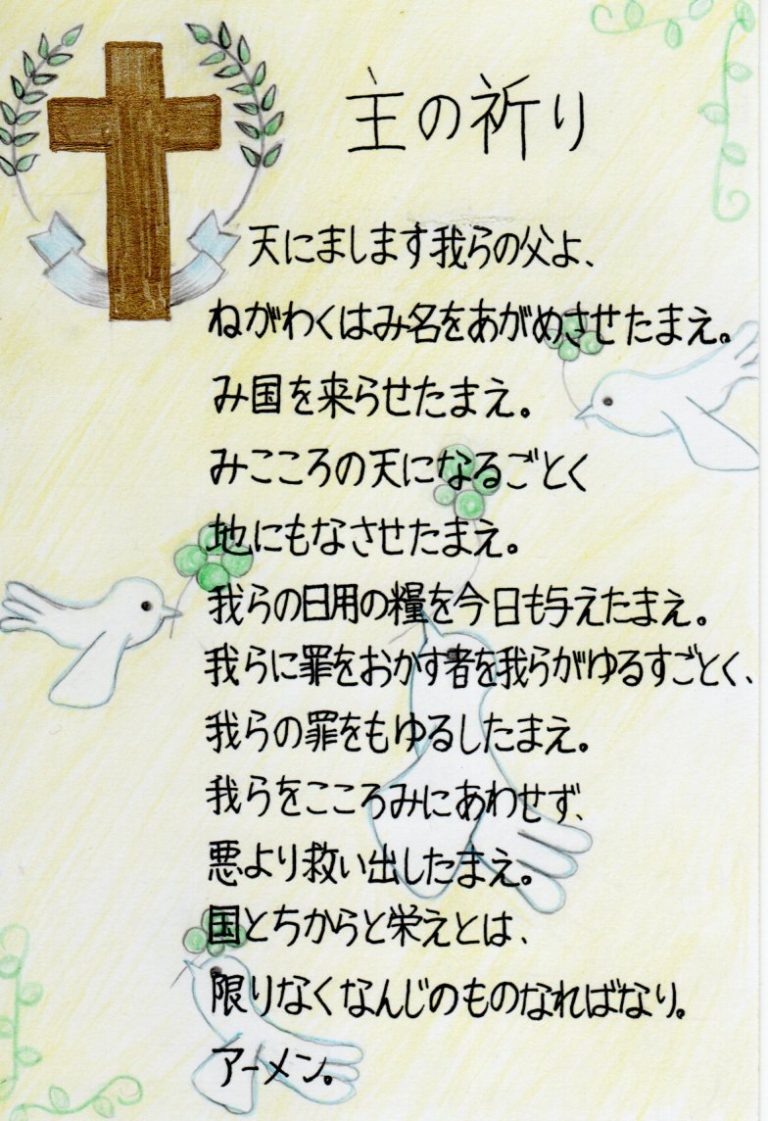 主の祈り
天にまします我らの父よ、
ねがわくはみ名をあがめさせたまえ。
み国を来らせたまえ。
みこころの天になるごとく
地にもなさせたまえ。
我らの日用の糧を今日も与えたまえ。
我らに罪をおかす者を我らがゆるすごとく、
我らの罪をもゆるしたまえ。
我らをこころみにあわせず、
悪より救い出したまえ。
国とちからと栄えとは、
限りなくなんじのものなればなり。
アーメン。